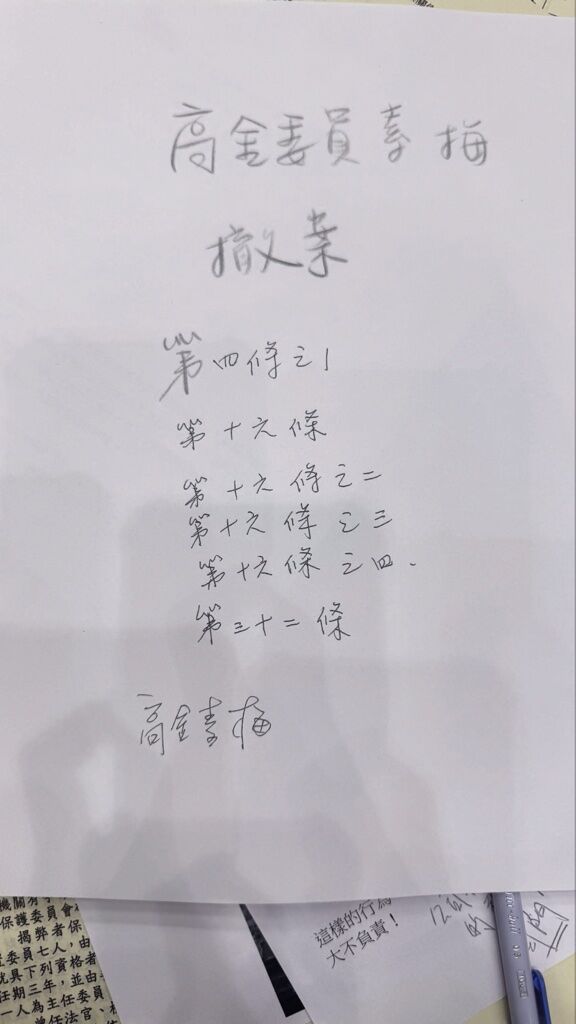 高金委員素梅
撤案
第四條之1
第十六條
第十六條之二
第十六條之三
第十六條之四.
第三十二條
高金素梅
機關有
保護委員會
揭弊者保
委員七人，由
就具下列資格者
任期三年，並由
一人為主任委員
曾任法官、
這樣的行為
大不負責！
的